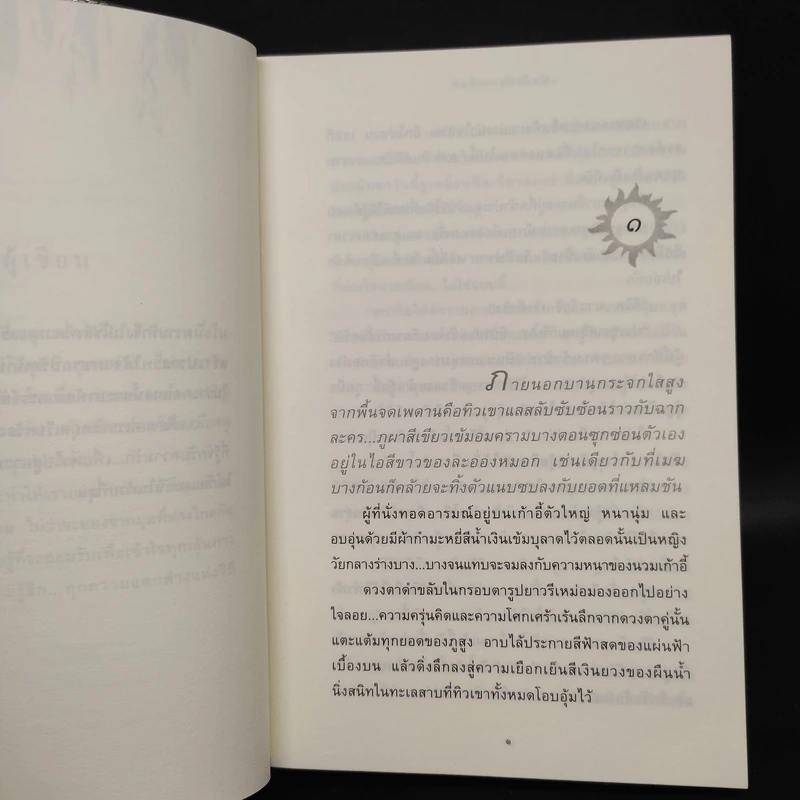 ๑
ภายนอกบานกระจกใสสูง
จากพื้นจดเพดานคือทิวเขาแลสลับซับซ้อนราวกับฉาก
ละคร...ภูผาสีเขียวเข้มอมครามบางตอนซุกซ่อนตัวเอง
อยู่ในไอสีขาวของละอองหมอก เช่นเดียวกับที่เมฆ
บางก้อนก็คล้ายจะทิ้งตัวแนบซบลงกับยอดที่แหลมชัน
ผู้ที่นั่งทอดอารมณ์อยู่บนเก้าอี้ตัวใหญ่ หนานุ่ม และ
อบอุ่นด้วยมีผ้ากำมะหยี่สีน้ำเงินเข้มบุลาดไว้ตลอดนั้นเป็นหญิง
วัยกลางร่างบาง...บางจนแทบจะจมลงกับความหนาของนวมเก้าอี้
ดวงตาดำขลับในกรอบตารูปยาวรีเหม่อมองออกไปอย่าง
ใจลอย...ความครุ่นคิดและความโศกเศร้าเร้นลึกจากดวงตาคู่นั้น
แตะแต้มทุกยอดของภูสูง อาบไล้ประกายสีฟ้าสดของแผ่นฟ้า
เบื้องบน แล้วดิ่งลึกลงสู่ความเยือกเย็นสีเงินยวงของผืนน้ำ
นิ่งสนิทในทะเลสาบที่ทิวเขาทั้งหมดโอบอุ้มไว้
๑